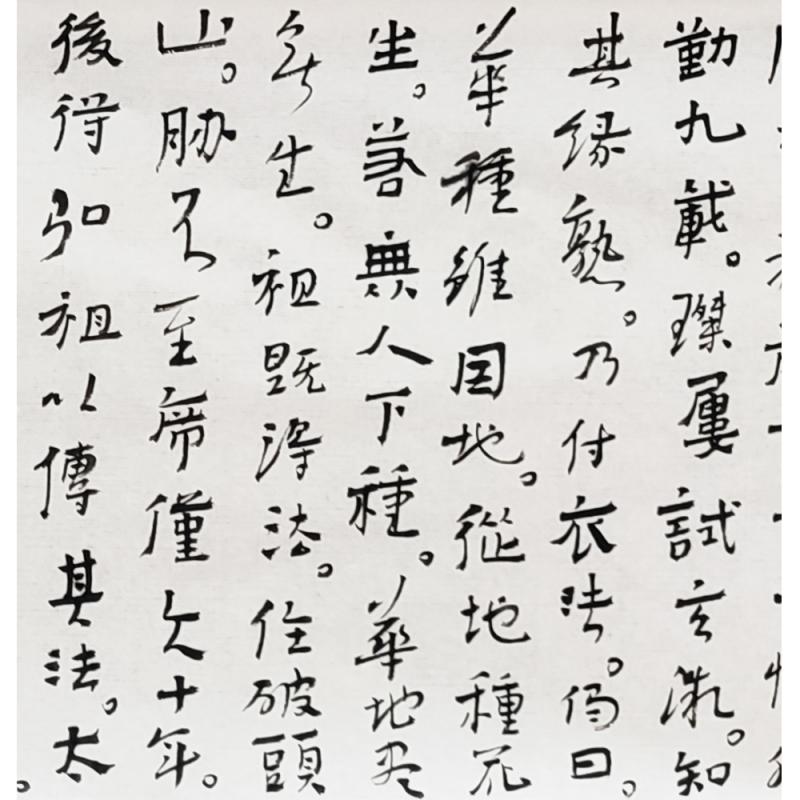 勤九載。璨屢試玄微。知
其緣熟。乃付衣法。偈曰。
華種雖因地。從地種花
生。若無人下種。華地盡
無生。祖既得法。住破頭
山。脇不至席僅六十年。
後得弘祖以傳其法。太